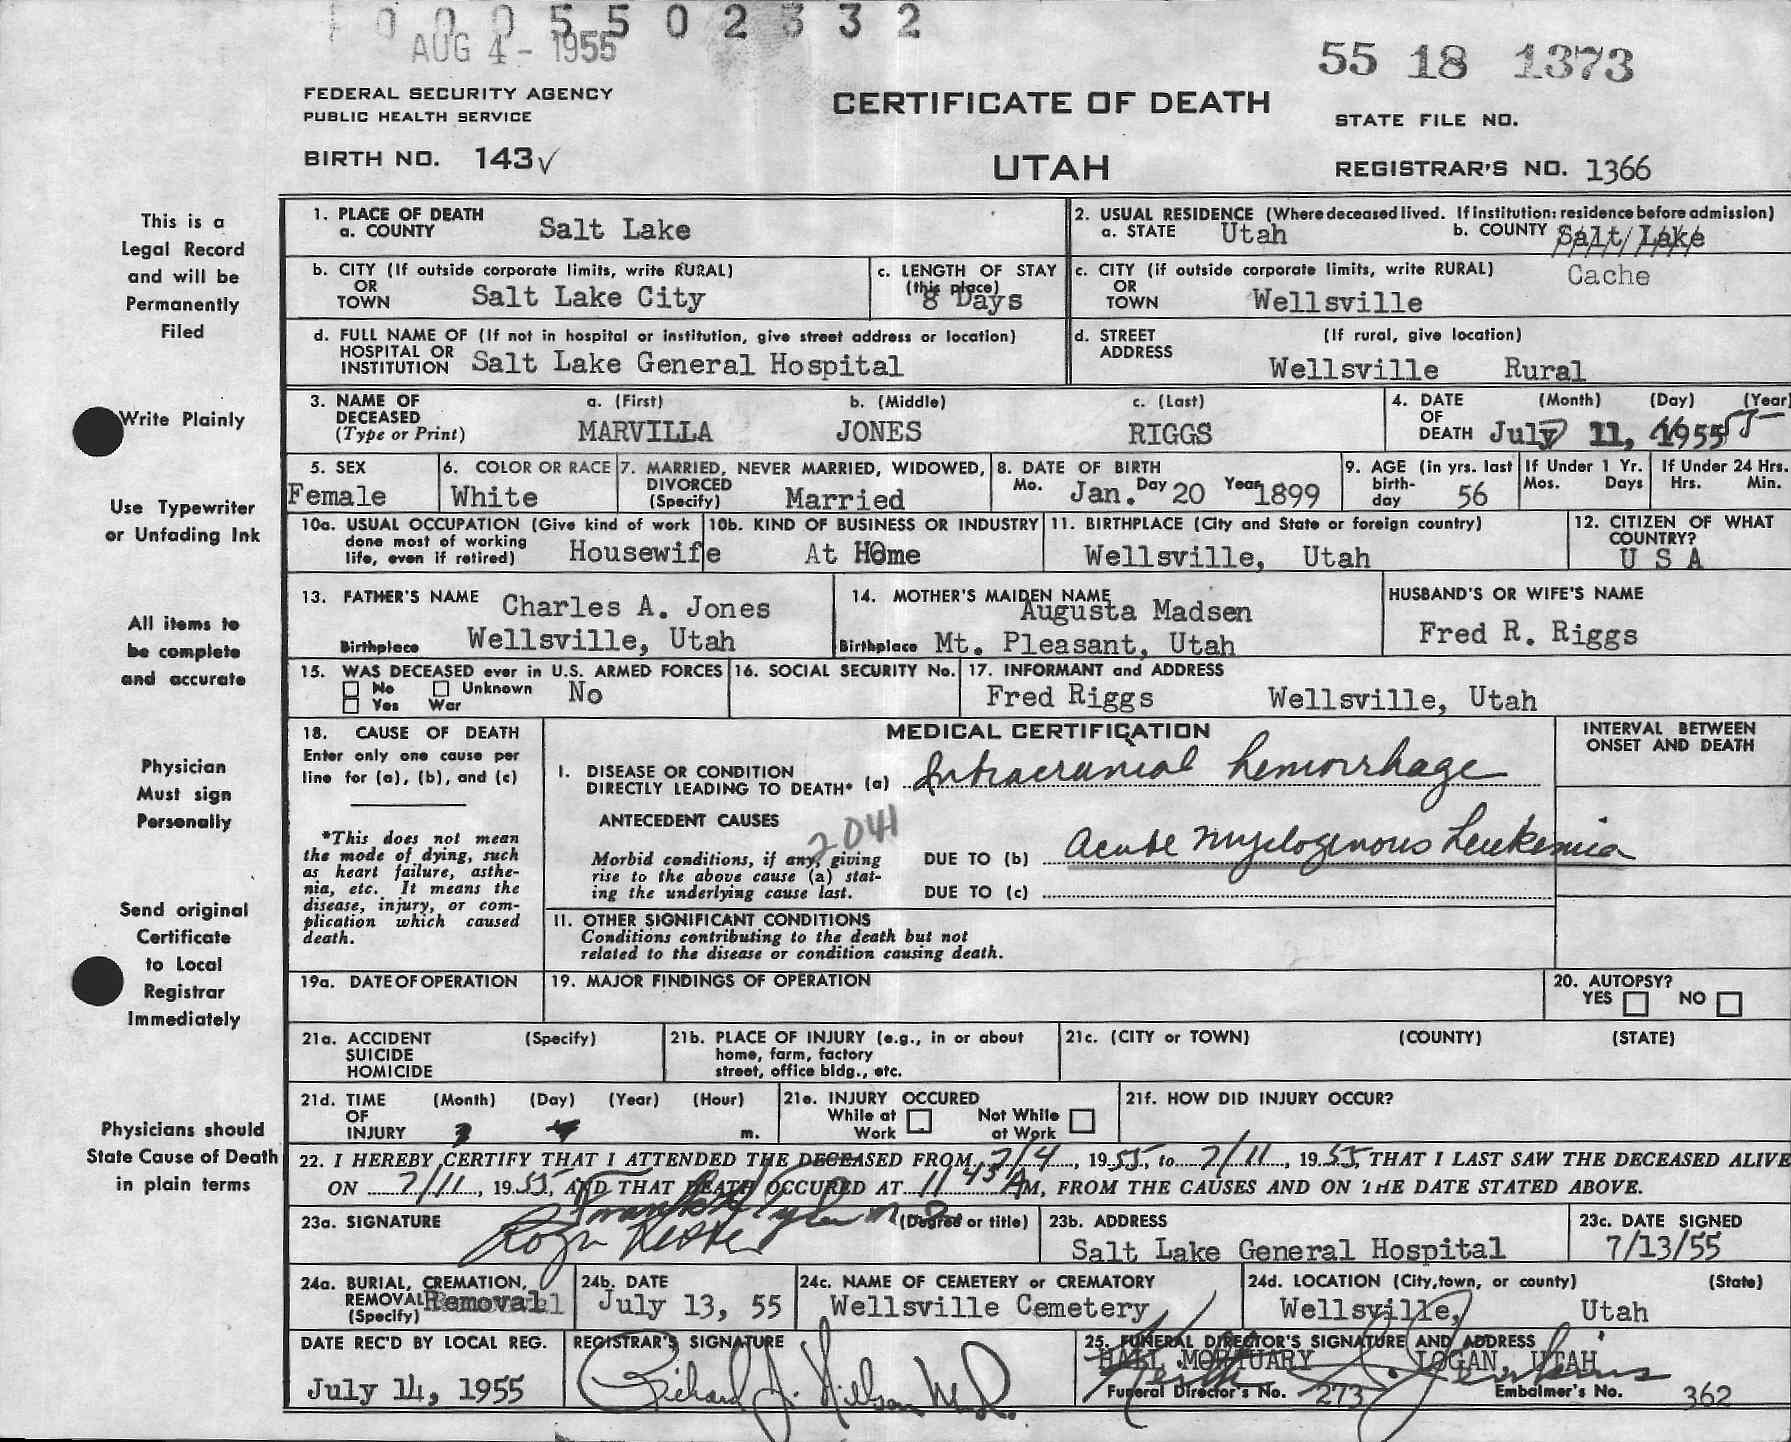 0 0 0 5 5 0 2 3 3 2
AUG 4 - 1955
55 18 1373
FEDERAL SECURITY AGENCY
PUBLIC HEALTH SERVICE
CERTIFICATE OF DEATH
STATE FILE NO.
BIRTH NO. 143
UTAH
REGISTRAR'S NO. 1366
This is a
Legal Record
and will be
Permanently
Filed
Write Plainly
Use Typewriter
or Unfading Ink
All items to
be complete
and accurate
Physician
Must sign
Personally
Send original
Certificate
to Local
Registrar
Immediately
Physicians should
State Cause of Death
in plain terms
1. PLACE OF DEATH
a. COUNTY Salt Lake
2. USUAL RESIDENCE (Where deceased lived. If institution: residence before admission)
a. STATE Utah b. COUNTY Salt Lake
Cache
b. CITY (If outside corporate limits, write RURAL)
OR
TOWN Salt Lake City
c. LENGTH OF STAY
(this place)
8 Days
c. CITY (if outside corporate limits, write RURAL)
OR
TOWN Wellsville
d. FULL NAME OF (If not in hospital or institution, give street address or location)
HOSPITAL OR
INSTITUTION Salt Lake General Hospital
d. STREET (If rural, give location)
ADDRESS
Wellsville Rural
3. NAME OF a. (First) b. (Middle) c. (Last)
DECEASED
(Type or Print) MARVILLA JONES RIGGS
4. DATE (Month) (Day) (Year)
OF
DEATH July 11, 1955
5. SEX
Female
6. COLOR OR RACE
White
7. MARRIED, NEVER MARRIED, WIDOWED,
DIVORCED
(Specify) Married
8. DATE OF BIRTH
Mo. Jan. Day 20 Year 1899
9. AGE (in yrs. last
birth-
day 56
If Under 1 Yr.
Mos. Days
If Under 24 Hrs.
Hrs. Min.
10a. USUAL OCCUPATION (Give kind of work
done most of working
life, even if retired) Housewife
10b. KIND OF BUSINESS OR INDUSTRY
At Home
11. BIRTHPLACE (City and State or foreign country)
Wellsville, Utah
12. CITIZEN OF WHAT
COUNTRY?
U S A
13. FATHER'S NAME Charles A. Jones
Birthplace Wellsville, Utah
14. MOTHER'S MAIDEN NAME
Augusta Madsen
Birthplace Mt. Pleasant, Utah
HUSBAND'S OR WIFE'S NAME
Fred R. Riggs
15. WAS DECEASED ever in U.S. ARMED FORCES
No Unknown No
Yes War
16. SOCIAL SECURITY No.
17. INFORMANT and ADDRESS
Fred Riggs Wellsville, Utah
18. CAUSE OF DEATH
Enter only one cause per
line for (a), (b), and (c)
*This does not mean
the mode of dying, such
as heart failure, asthe-
nia, etc. It means the
disease, injury, or com-
plication which caused
death.
MEDICAL CERTIFICATION
INTERVAL BETWEEN
ONSET AND DEATH
I. DISEASE OR CONDITION
DIRECTLY LEADING TO DEATH* (a) Intracranial hemorrhage
ANTECEDENT CAUSES
2041
Morbid conditions, if any, giving
rise to the above cause (a) stat-
ing the underlying cause last.
DUE TO (b) acute myelogenous leukemia
DUE TO (c)
II. OTHER SIGNIFICANT CONDITIONS
Conditions contributing to the death but not
related to the disease or condition causing death.
19a. DATE OF OPERATION
19. MAJOR FINDINGS OF OPERATION
20. AUTOPSY?
YES NO
21a. ACCIDENT (Specify)
SUICIDE
HOMICIDE
21b. PLACE OF INJURY (e.g., in or about
home, farm, factory
street, office bldg., etc.
21c. (CITY or TOWN) (COUNTY) (STATE)
21d. TIME (Month) (Day) (Year) (Hour)
OF
INJURY m.
21e. INJURY OCCURED
While at Not While
Work at Work
21f. HOW DID INJURY OCCUR?
22. I HEREBY CERTIFY THAT I ATTENDED THE DECEASED FROM 7/4, 1955, to 7/11, 1955, THAT I LAST SAW THE DECEASED ALIVE
ON 7/11, 1955, AND THAT DEATH OCCURED AT 11 45 AM, FROM THE CAUSES AND ON THE DATE STATED ABOVE.
23a. SIGNATURE (Degree or title)
Frank H Tyler M.D.
23b. ADDRESS
Salt Lake General Hospital
23c. DATE SIGNED
7/13/55
24a. BURIAL, CREMATION,
REMOVAL Removal
(Specify)
24b. DATE
July 13, 55
24c. NAME OF CEMETERY or CREMATORY
Wellsville Cemetery
24d. LOCATION (City, town, or county) (State)
Wellsville, Utah
DATE REC'D BY LOCAL REG.
July 14, 1955
REGISTRAR'S SIGNATURE
Richard J. Nielson M.D.
25. FUNERAL DIRECTOR'S SIGNATURE AND ADDRESS
HALL MORTUARY LOGAN, UTAH
Funeral Director's No. 273 Embalmer's No. 362